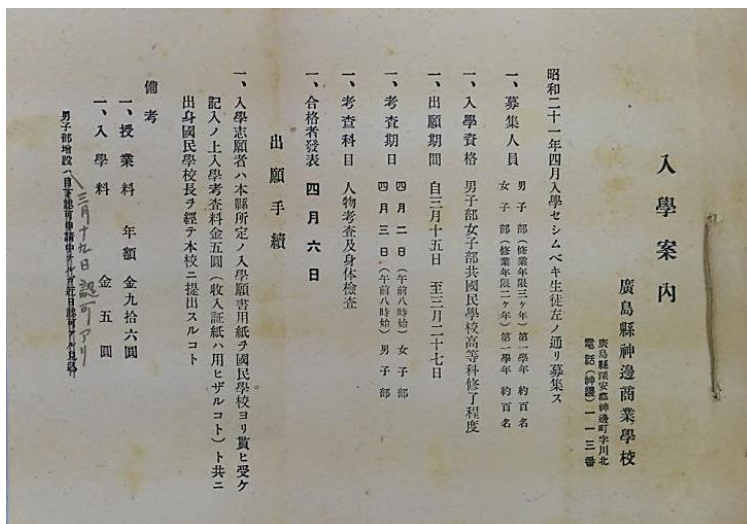 入學案內
廣島縣神邊商業學校
廣島縣深安郡神邊町字川北
電話(神邊)一一三番
昭和二十一年四月入學セシムベキ生徒左ノ通リ募集ス
一、募集人員 男子部(修業年限三ケ年)第一學年 約百名
女子部(修業年限二ケ年)第一學年 約百名
一、入學資格 男子部女子部共國民學校高等科修了程度
一、出願期間 自三月十五日 至三月二十七日
一、考査期日 四月二日(午前八時始)女子部
四月三日(午前八時始)男子部
一、考査科目 人物考査及身体檢査
一、合格者發表 四月六日
出願手續
一、入學志願者ハ本縣所定ノ入學願書用紙ヲ國民學校ヨリ貰ヒ受ケ
記入ノ上入學考査料金五圓(收入証紙ハ用ヒザルコト)ト共ニ
出身國民學校長ヲ經テ本校ニ提出スルコト
備考
一、授業料 年額 金九拾六圓
一、入學料 金五圓
男子部增設ハ目下認可申請中ナルガ近日認可アル見込
三月十九日認可アリ